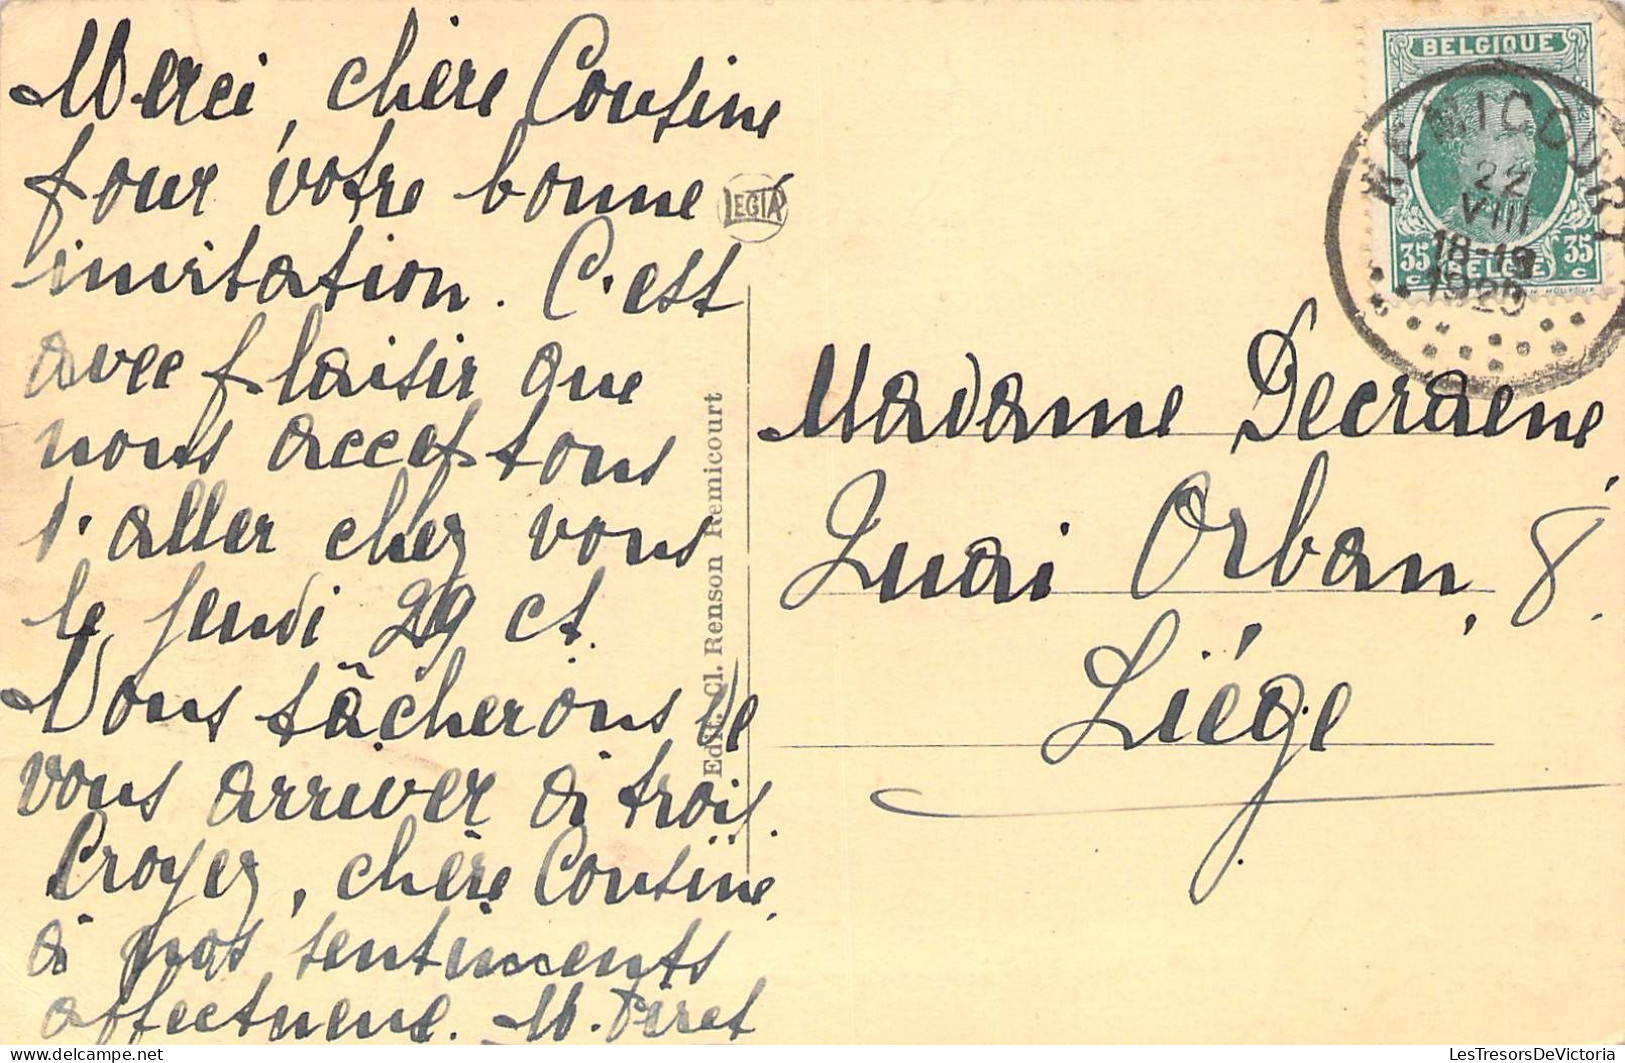 Merci, chère Cousine
pour votre bonne
invitation. C'est
avec plaisir que
nous acceptons
d'aller chez vous
le jeudi 29 ct.
Nous tâcherons de
vous arriver à trois.
Croyez, chère Cousine,
à nos sentiments
affectueux. M. Piret
LEGIA
Edit. Cl. Renson Remicourt
BELGIQUE
REMICOURT
22
VIII
18-19
35 c BELGIE 35 c
Madame Decraene,
Quai Orban, 8.
Liége
LesTresorsDeVictoria